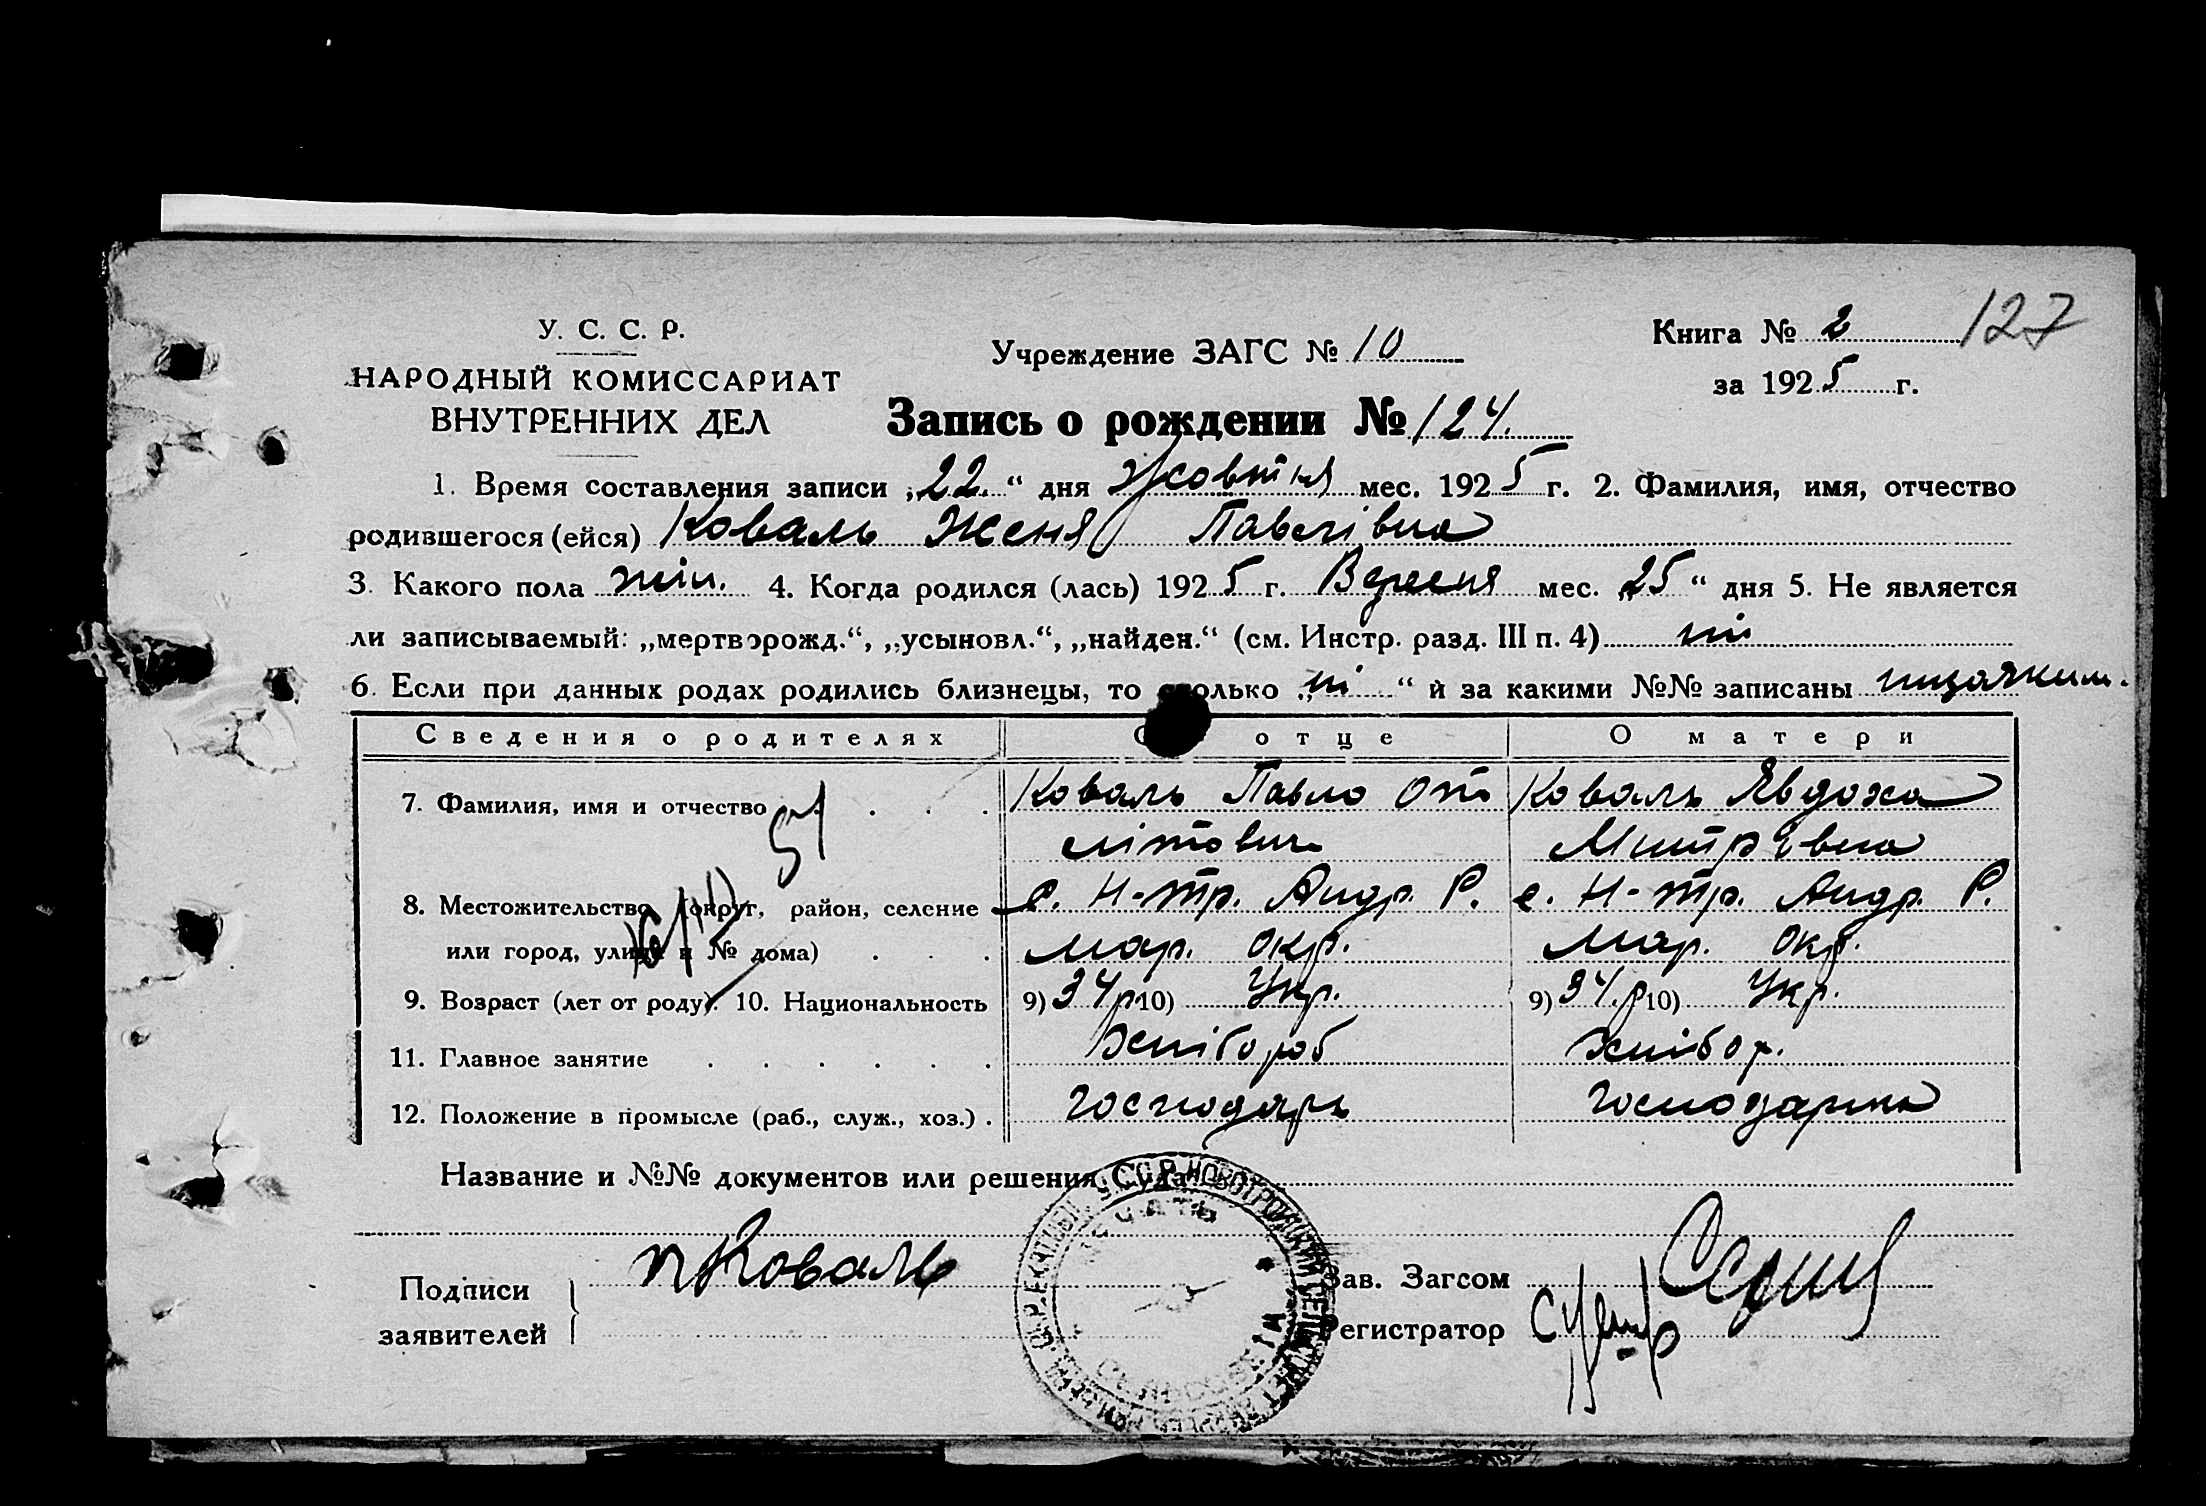 127
У. С. С. Р.
НАРОДНЫЙ КОМИССАРИАТ
ВНУТРЕННИХ ДЕЛ
Учреждение ЗАГС № 10
Книга № 2
за 1925 г.
Запись о рождении № 124.
1. Время составления записи „22“ дня Жовтня мес. 1925 г. 2. Фамилия, имя, отчество
родившегося (ейся) Коваль Женя Павлівна
3. Какого пола жін. 4. Когда родился (лась) 1925 г. Вересня мес. „25“ дня 5. Не является
ли записываемый: „мертворожд.“, „усыновл.“, „найден.“ (см. Инстр. разд. III п. 4) ні
6. Если при данных родах родились близнецы, то сколько „ні“ и за какими №№ записаны
Сведения о родителях О отце О матери
7. Фамилия, имя и отчество Коваль Павло Коваль Явдоха
8. Местожительство (округ, район, селение с. Н-тр. Андр. Р. с. Н-тр. Андр. Р.
или город, улица и № дома) мар. окр. мар. окр.
9. Возраст (лет от роду). 10. Национальность 9) 34 р. 10) Укр. 9) 34. р. 10) Укр.
11. Главное занятие Хлібороб Хлібор.
12. Положение в промысле (раб., служ., хоз.) Господарь Господарка
Название и №№ документов или решения Суда
Подписи
заявителей
пКоваль
Зав. Загсом
Регистратор